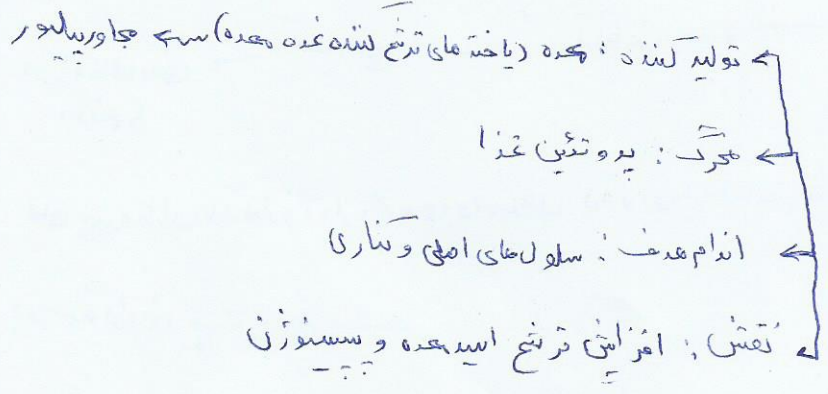 تولید کننده : معده (یاخته های ترشح کننده غده معده) ← مجاور پیلور
محرک : پروتئین غذا
اندام هدف : سلول های اصلی و کناری
نقش : افزایش ترشح اسید معده و پپسینوژن